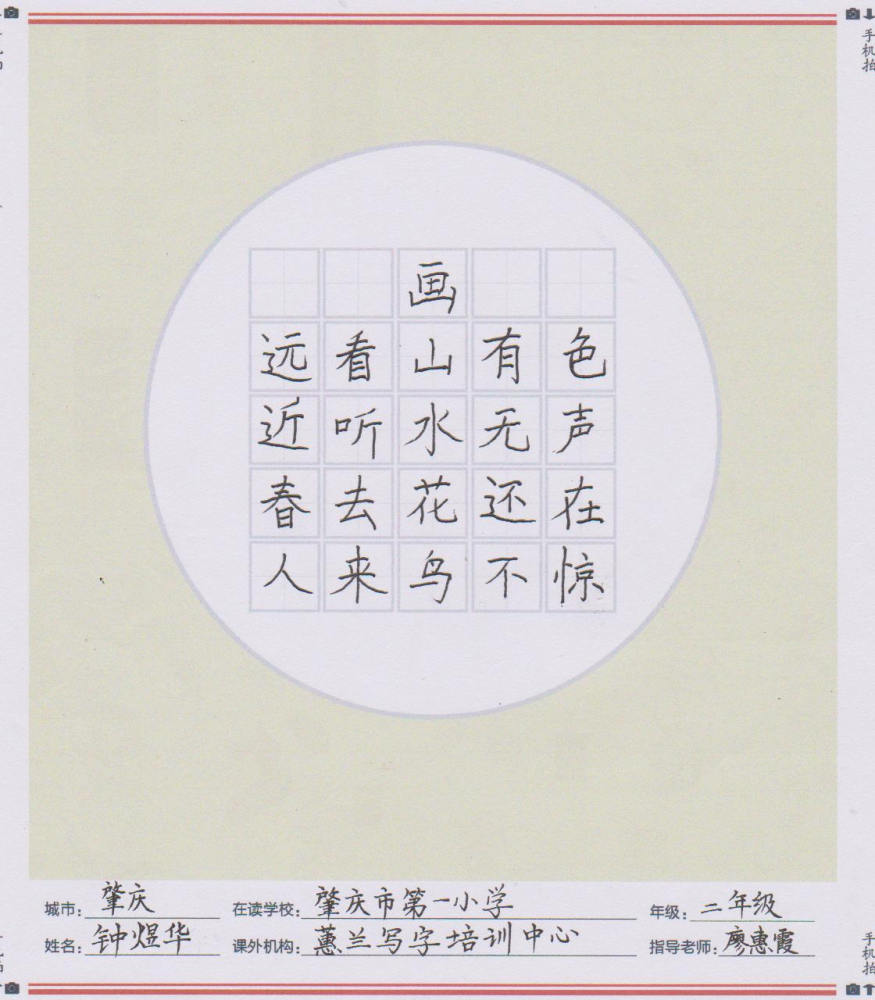 手机拍
画
远看山有色
近听水无声
春去花还在
人来鸟不惊
城市: 肇庆 在读学校: 肇庆市第一小学 年级: 二年级
姓名: 钟煜华 课外机构: 蕙兰写字培训中心 指导老师: 廖惠霞
手机拍